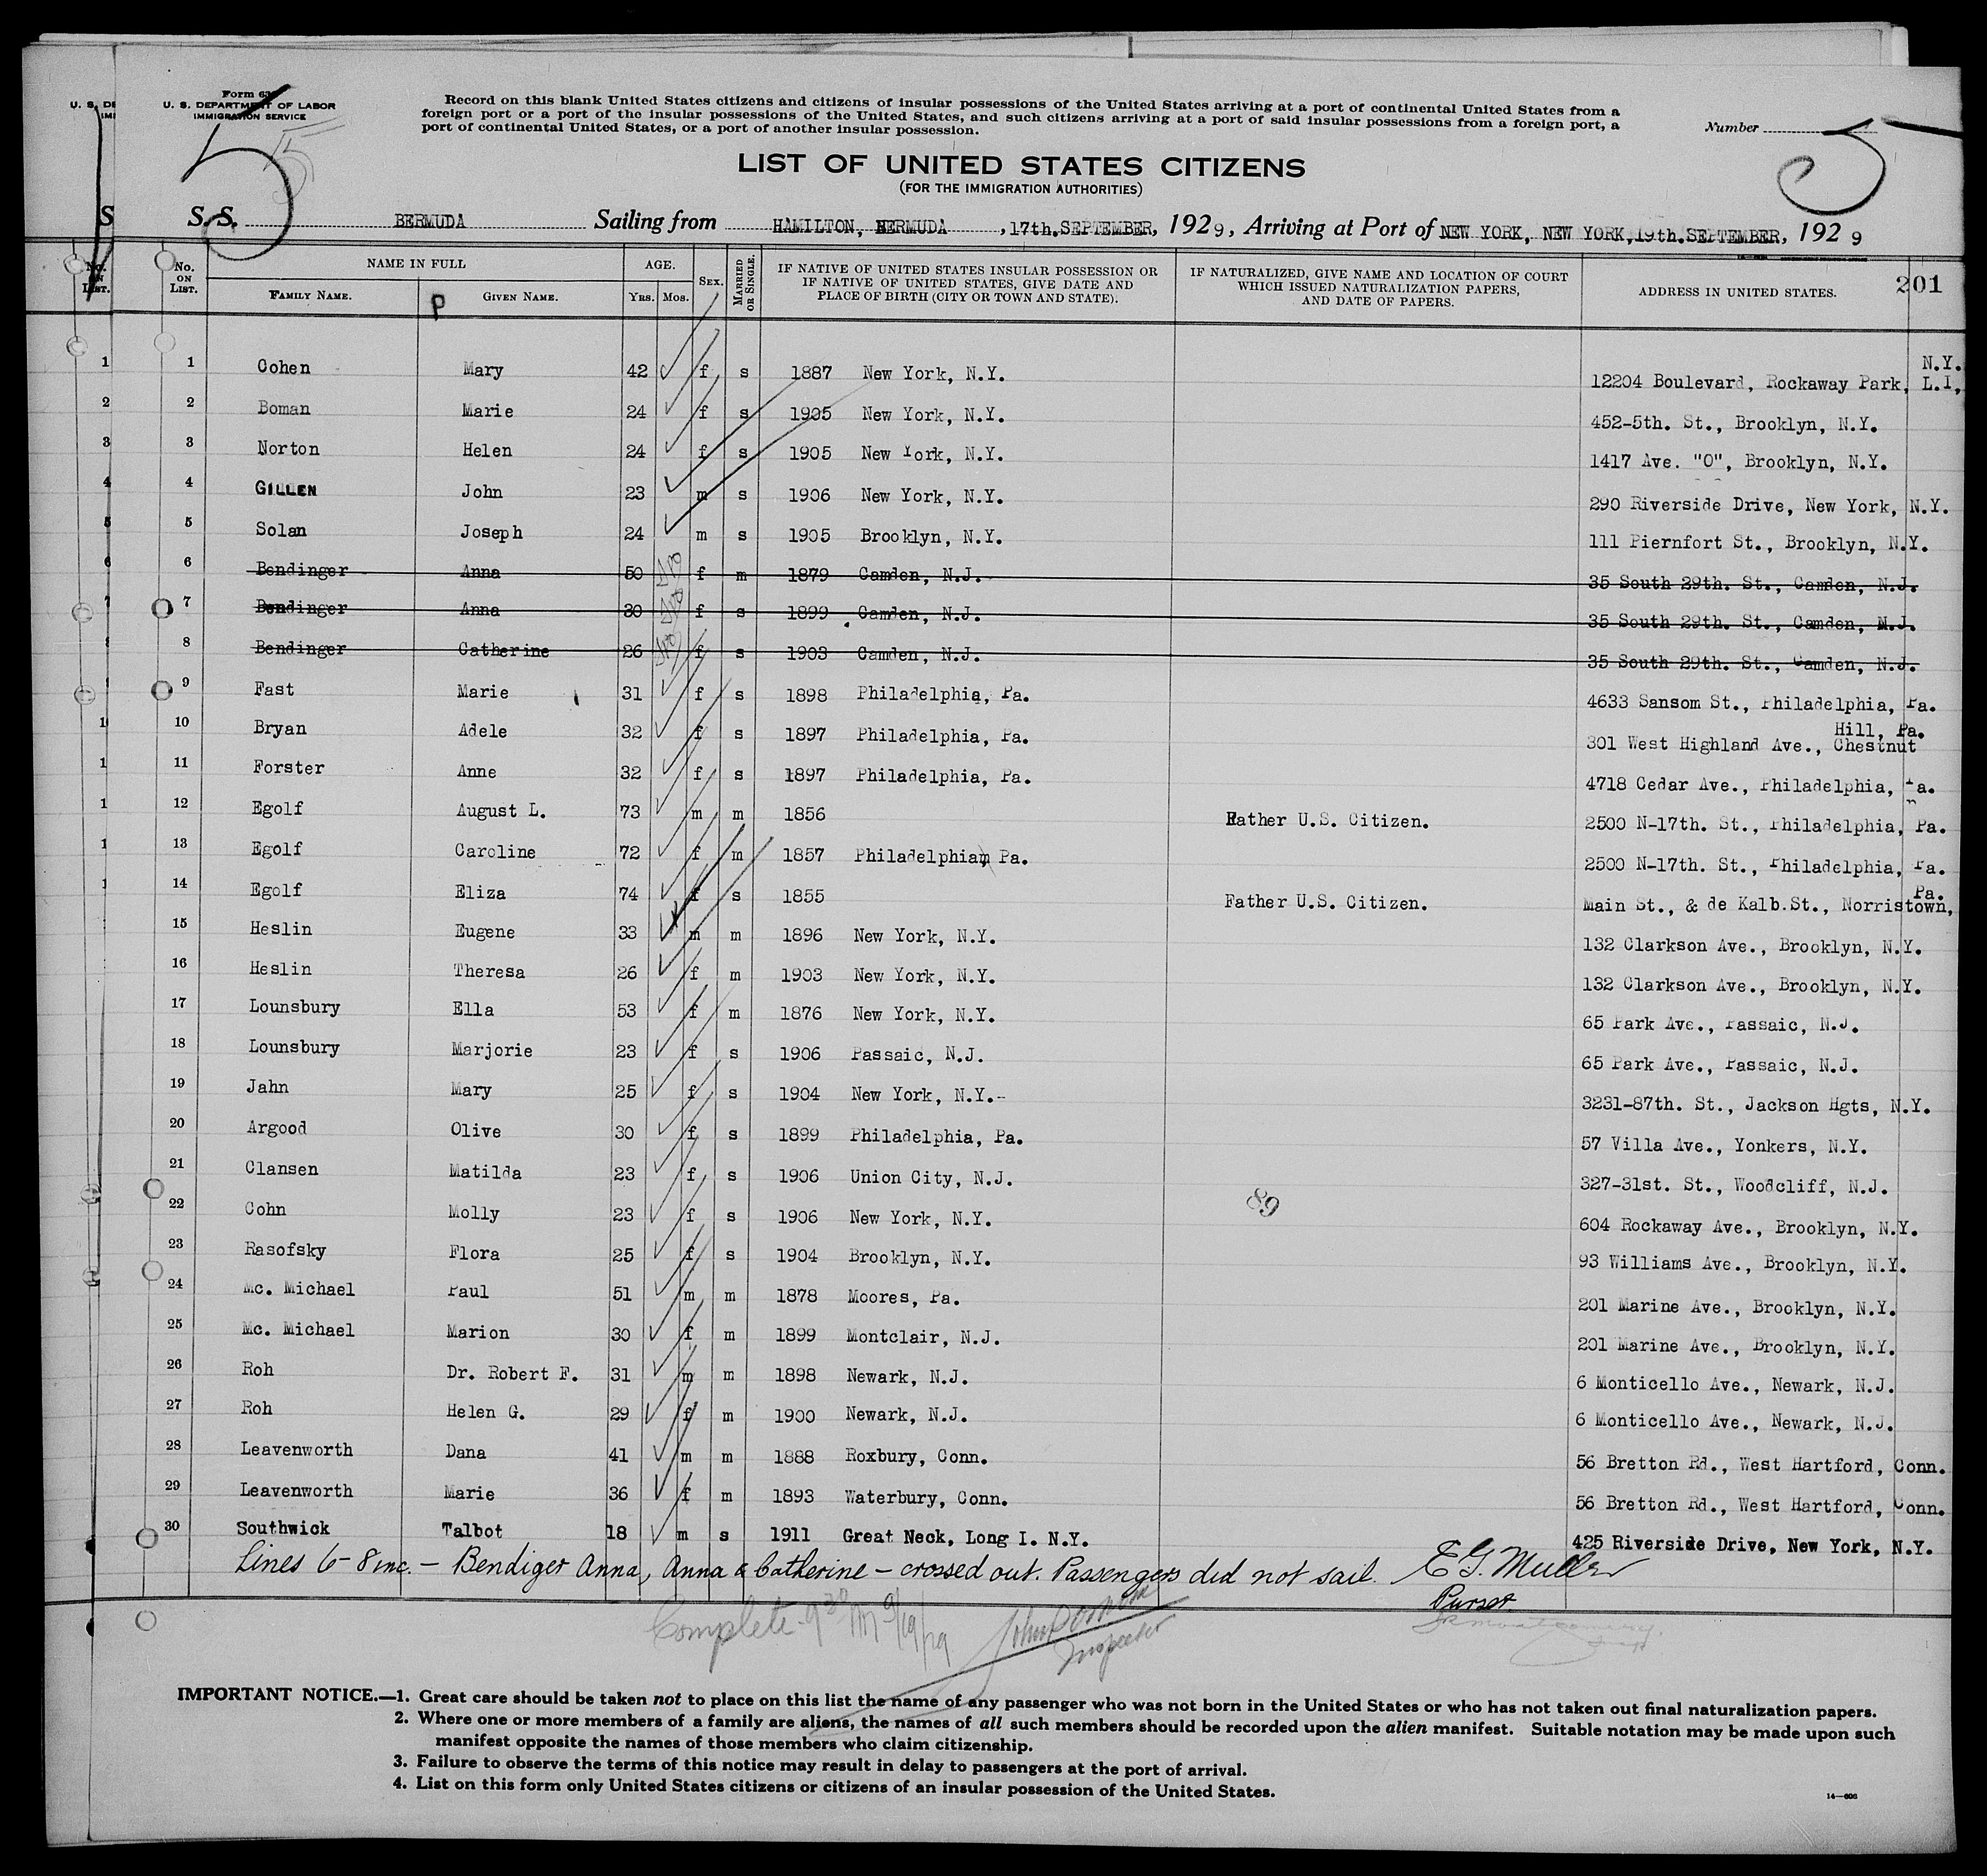 Form 63
U. S. DEPARTMENT OF LABOR
IMMIGRATION SERVICE
Record on this blank United States citizens and citizens of insular possessions of the United States arriving at a port of continental United States from a
foreign port or a port of the insular possessions of the United States, and such citizens arriving at a port of said insular possessions from a foreign port, a
port of continental United States, or a port of another insular possession.
Number 5
5
LIST OF UNITED STATES CITIZENS
(FOR THE IMMIGRATION AUTHORITIES)
S. S. BERMUDA Sailing from HAMILTON, BERMUDA, 17th.SEPTEMBER, 1929, Arriving at Port of NEW YORK, NEW YORK, 19th.SEPTEMBER, 1929
No. ON LIST. NAME IN FULL AGE. SEX. MARRIED OR SINGLE. IF NATIVE OF UNITED STATES INSULAR POSSESSION OR IF NATIVE OF UNITED STATES, GIVE DATE AND PLACE OF BIRTH (CITY OR TOWN AND STATE). IF NATURALIZED, GIVE NAME AND LOCATION OF COURT WHICH ISSUED NATURALIZATION PAPERS, AND DATE OF PAPERS. ADDRESS IN UNITED STATES. 201
FAMILY NAME. P GIVEN NAME. YRS. MOS.
1 Cohen Mary 42 f s 1887 New York, N.Y. 12204 Boulevard, Rockaway Park, L.I, N.Y.
2 Boman Marie 24 f s 1905 New York, N.Y. 452-5th. St., Brooklyn, N.Y.
3 Norton Helen 24 f s 1905 New York, N.Y. 1417 Ave. "O", Brooklyn, N.Y.
4 GILLEN John 23 m s 1906 New York, N.Y. 290 Riverside Drive, New York, N.Y.
5 Solan Joseph 24 m s 1905 Brooklyn, N.Y. 111 Piernfort St., Brooklyn, N.Y.
6 Bendinger Anna 50 f m 1879 Camden, N.J. 35 South 29th. St., Camden, N.J.
7 Bendinger Anna 30 f s 1899 Camden, N.J. 35 South 29th. St., Camden, N.J.
8 Bendinger Catherine 26 f s 1903 Camden, N.J. 35 South 29th. St., Camden, N.J.
9 Fast Marie 31 f s 1898 Philadelphia, Pa. 4633 Sansom St., Philadelphia, Pa.
10 Bryan Adele 32 f s 1897 Philadelphia, Pa. 301 West Highland Ave., Chestnut Hill, Pa.
11 Forster Anne 32 f s 1897 Philadelphia, Pa. 4718 Cedar Ave., Philadelphia, Pa.
12 Egolf August L. 73 m m 1856 Father U.S. Citizen. 2500 N-17th. St., Philadelphia, Pa.
13 Egolf Caroline 72 f m 1857 Philadelphia, Pa. 2500 N-17th. St., Philadelphia, Pa.
14 Egolf Eliza 74 f s 1855 Father U.S. Citizen. Main St., & de Kalb.St., Norristown, Pa.
15 Heslin Eugene 33 m m 1896 New York, N.Y. 132 Clarkson Ave., Brooklyn, N.Y.
16 Heslin Theresa 26 f m 1903 New York, N.Y. 132 Clarkson Ave., Brooklyn, N.Y.
17 Lounsbury Ella 53 f m 1876 New York, N.Y. 65 Park Ave., Passaic, N.J.
18 Lounsbury Marjorie 23 f s 1906 Passaic, N.J. 65 Park Ave., Passaic, N.J.
19 Jahn Mary 25 f s 1904 New York, N.Y.- 3231-87th. St., Jackson Hgts, N.Y.
20 Argood Olive 30 f s 1899 Philadelphia, Pa. 57 Villa Ave., Yonkers, N.Y.
21 Clansen Matilda 23 f s 1906 Union City, N.J. 327-31st. St., Woodcliff, N.J.
22 Cohn Molly 23 f s 1906 New York, N.Y. 89 604 Rockaway Ave., Brooklyn, N.Y.
23 Rasofsky Flora 25 f s 1904 Brooklyn, N.Y. 93 Williams Ave., Brooklyn, N.Y.
24 Mc. Michael Paul 51 m m 1878 Moores, Pa. 201 Marine Ave., Brooklyn, N.Y.
25 Mc. Michael Marion 30 f m 1899 Montclair, N.J. 201 Marine Ave., Brooklyn, N.Y.
26 Roh Dr. Robert F. 31 m m 1898 Newark, N.J. 6 Monticello Ave., Newark, N.J.
27 Roh Helen G. 29 f m 1900 Newark, N.J. 6 Monticello Ave., Newark, N.J.
28 Leavenworth Dana 41 m m 1888 Roxbury, Conn. 56 Bretton Rd., West Hartford, Conn.
29 Leavenworth Marie 36 f m 1893 Waterbury, Conn. 56 Bretton Rd., West Hartford, Conn.
30 Southwick Talbot 18 m s 1911 Great Neck, Long I. N.Y. 425 Riverside Drive, New York, N.Y.
Lines 6-8 inc. - Bendiger Anna, Anna & Catherine - crossed out. Passengers did not sail. E G. Muller
Purser
Complete 9 30 9/19/29 John Inspector
IMPORTANT NOTICE.—1. Great care should be taken not to place on this list the name of any passenger who was not born in the United States or who has not taken out final naturalization papers.
2. Where one or more members of a family are aliens, the names of all such members should be recorded upon the alien manifest. Suitable notation may be made upon such
manifest opposite the names of those members who claim citizenship.
3. Failure to observe the terms of this notice may result in delay to passengers at the port of arrival.
4. List on this form only United States citizens or citizens of an insular possession of the United States.
14—606